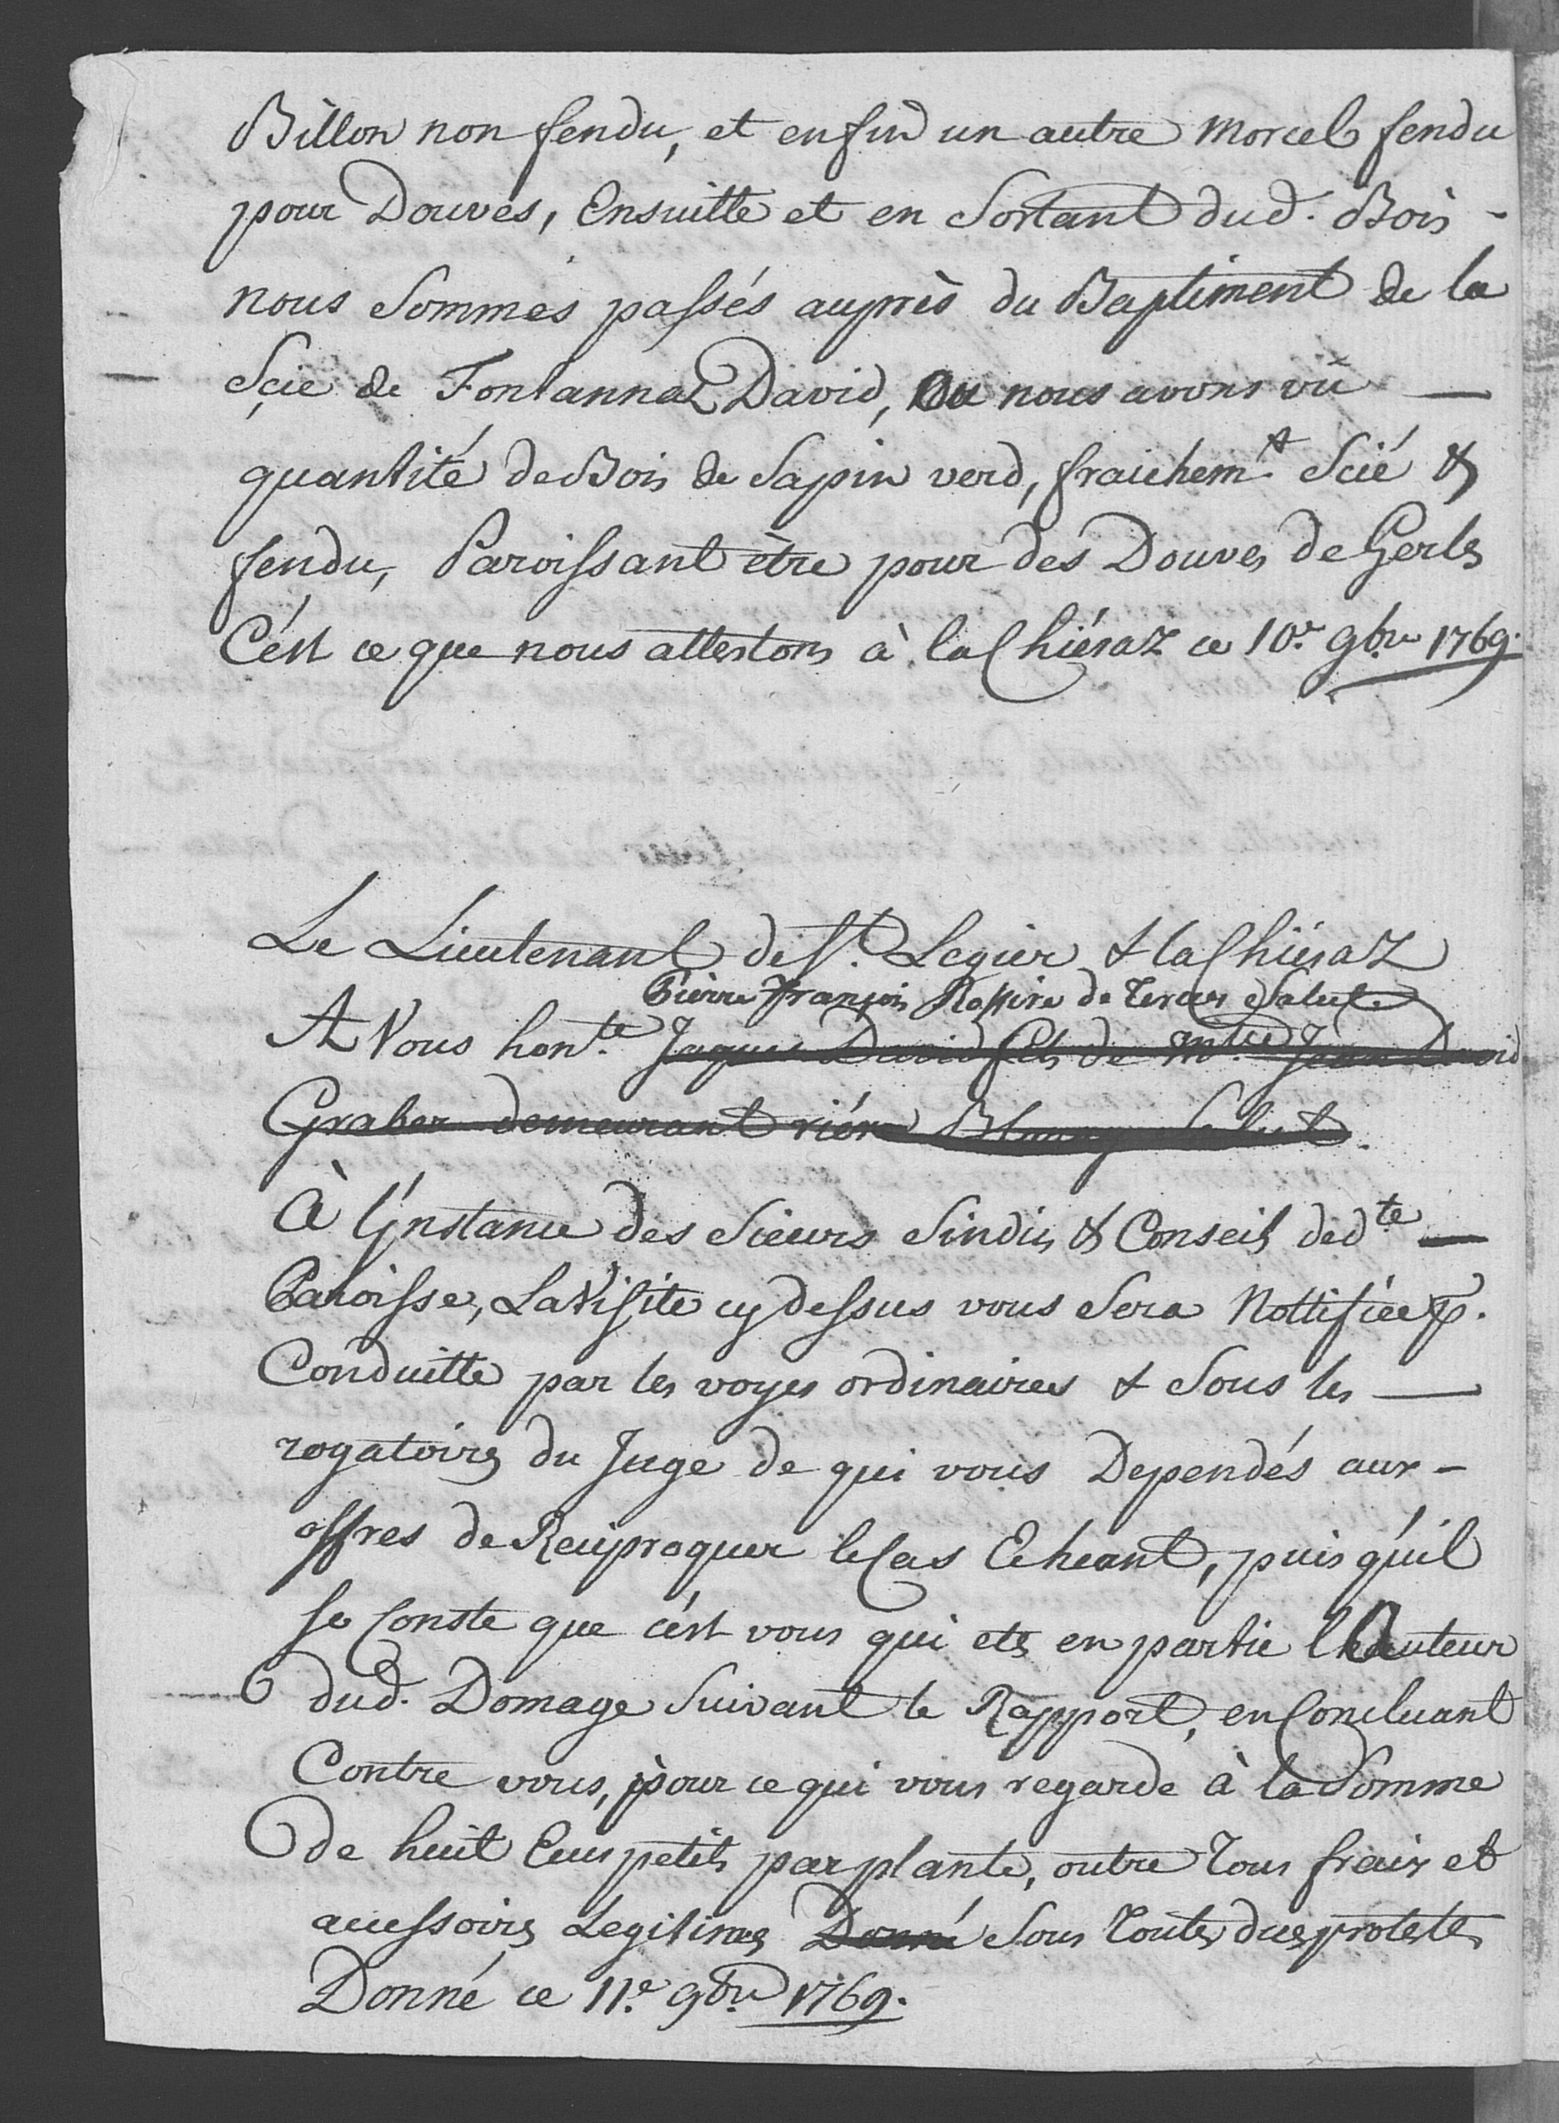 Billon non fendu, et enfin un autre Morcel fendu
pour Douves, Ensuitte et en Sortant dud. Bois -
nous Sommes passés auprès du Baptiment de la
Sçie de Fontannaz David, Ou nous avons vû —
quantité de Bois de Sapin verd, fraichemt. Scié &
fendu, Paroissant être pour des Douves de Gerles
C'ést ce que nous attestons à la Chiésaz ce 10.e 9bre 1769.
Le Lieutenant de St. Legier & la Chiésaz
Pierre François Rossire de Tercier Salut.
A Vous hon.te Jaques David fils de Mtre Jean David
Graber demeurant riére Blonay Salut.
A l'Instance des Sieurs Sindics & Conseil dedte —
Paroisse, La Visite cy dessus vous Sera Nottifiée p.
Conduitte par les voyes ordinaires & Sous les —
rogatoires du Juge de qui vous Dependés aux -
offres de Reciproquer le Cas Echeant, puis qu'il
se Conste que c'ést vous qui etes en partie l'Auteur
dud. Domage Suivant le Rapport, en Concluant
Contre vous, pour ce qui vous regarde à la Somme
de huit Ecus petits par plante, outre Tous frais et
accessoires Legitimes Donné Sous Toutes dues protestes
Donné ce 11.e 9bre 1769.